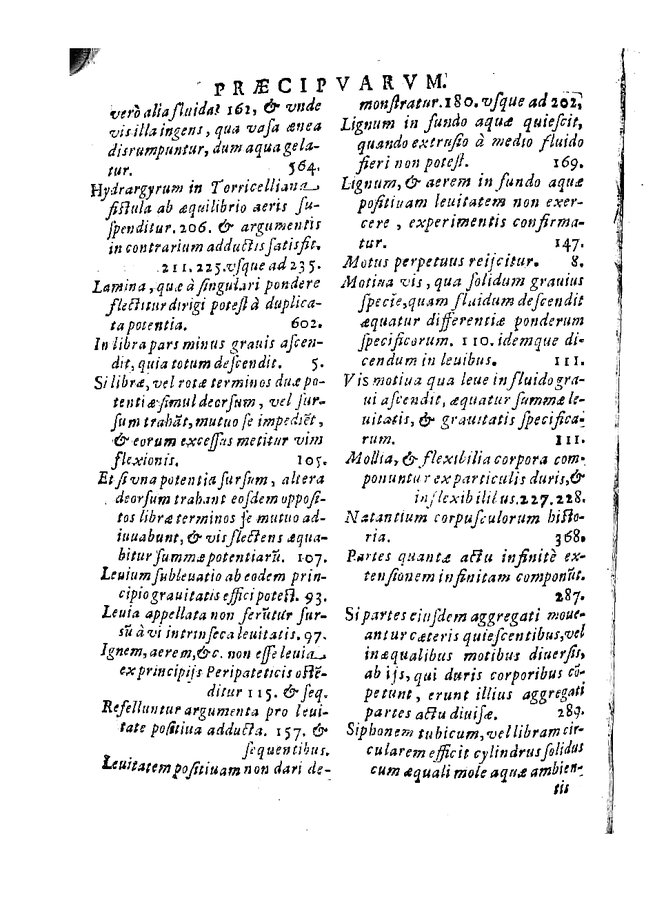 PRÆCIPVARVM.
verò alia fluida? 162, & vnde
vis illa ingens, qua vasa ænea
disrumpuntur, dum aqua gela-
tur. 564.
Hydrargyrum in Torricelliana
fistula ab æquilibrio aeris su-
spenditur. 206. & argumentis
in contrarium adductis satisfit.
211. 225. vsque ad 235.
Lamina, quæ à singulari pondere
flectitur dirigi potest à duplica-
ta potentia. 602.
In libra pars minus grauis ascen-
dit, quia totum descendit. 5.
Si libræ, vel rotæ terminos duæ po-
tentiæ simul deorsum, vel sur-
sum trahãt, mutuo se impediẽt,
& eorum excessus metitur vim
flexionis. 105.
Et si vna potentia sursum, altera
deorsum trahant eosdem opposi-
tos libræ terminos se mutuo ad-
iuuabunt, & vis flectens æqua-
bitur summæ potentiarũ. 107.
Leuium subleuatio ab eodem prin-
cipio grauitatis effici potest. 93.
Leuia appellata non ferũtur sur-
sũ à vi intrinseca leuitatis. 97.
Ignem, aerem, &c. non esse leuia
ex principijs Peripateticis ostẽ-
ditur 115. & seq.
Refelluntur argumenta pro leui-
tate positiua adducta. 157. &
sequentibus.
Leuitatem positiuam non dari de-
monstratur. 180. vsque ad 202,
Lignum in fundo aquæ quiescit,
quando extrusio à medio fluido
fieri non potest. 169.
Lignum, & aerem in fundo aquæ
positiuam leuitatem non exer-
cere, experimentis confirma-
tur. 147.
Motus perpetuus reijcitur. 8.
Motiua vis, qua solidum grauius
specie, quam fluidum descendit
æquatur differentiæ ponderum
specificorum. 110. idemque di-
cendum in leuibus. 111.
Vis motiua qua leue in fluido gra-
ui ascendit, æquatur summæ le-
uitatis, & grauitatis specifica-
rum. 111.
Mollia, & flexibilia corpora com-
ponuntur ex particulis duris, &
inflexibilibus. 227. 228.
Natantium corpusculorum histo-
ria. 368.
Partes quantæ actu infinitè ex-
tensionem infinitam componũt.
287.
Si partes eiusdem aggregati moue-
antur cæteris quiescentibus, vel
inæqualibus motibus diuersis,
ab ijs, qui duris corporibus cõ-
petunt, erunt illius aggregati
partes actu diuisæ. 289.
Siphonem tubicum, vel libram cir-
cularem efficit cylindrus solidus
cum æquali mole aquæ ambien-
tis